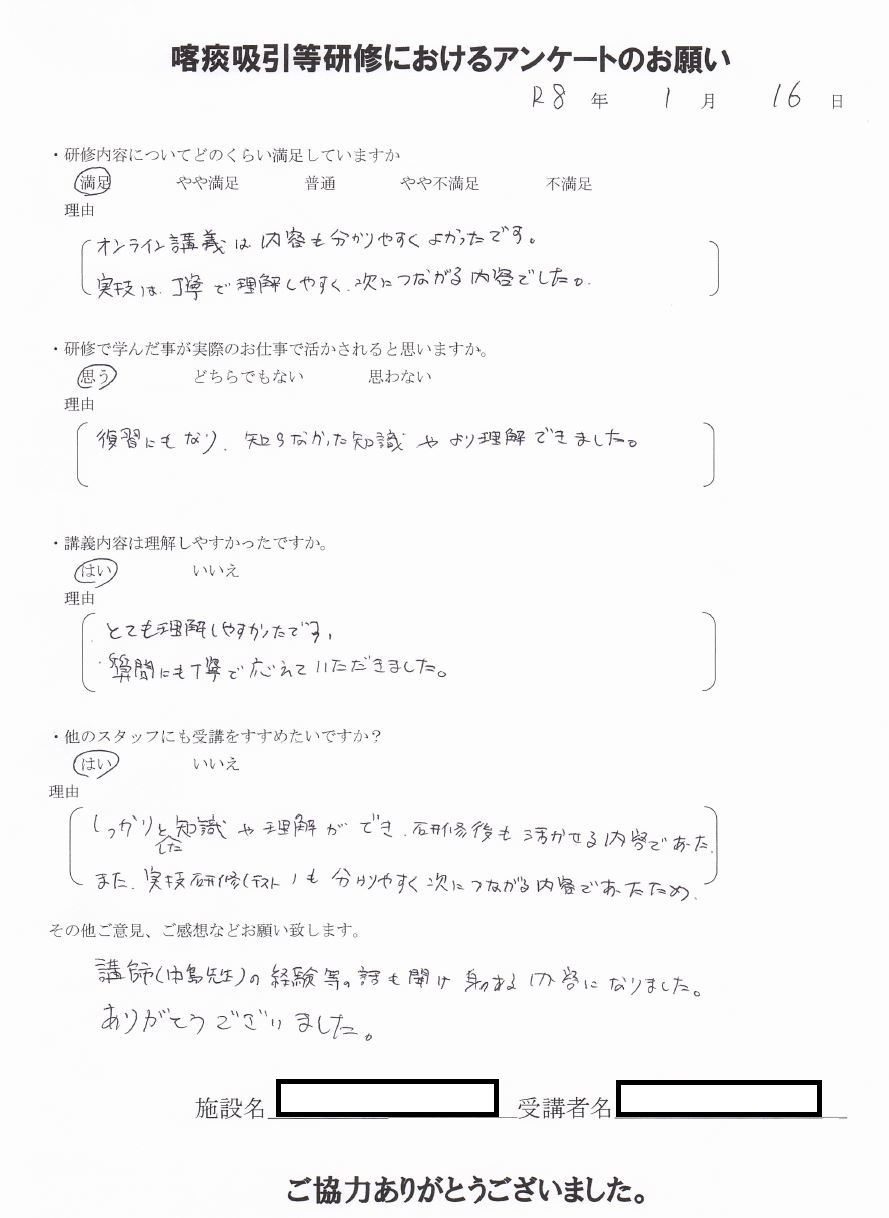 喀痰吸引等研修におけるアンケートのお願い
R8 年 1 月 16 日
・研修内容についてどのくらい満足していますか
満足 やや満足 普通 やや不満足 不満足
理由
オンライン講義は内容も分かりやすくよかったです。
実技は、丁寧で理解しやすく、次につながる内容でした。
・研修で学んだ事が実際のお仕事で活かされると思いますか。
思う どちらでもない 思わない
理由
復習にもなり、知らなかった知識やより理解できました。
・講義内容は理解しやすかったですか。
はい いいえ
理由
・とても理解しやすかったです。
・質問にも丁寧で応えていただきました。
・他のスタッフにも受講をすすめたいですか？
はい いいえ
理由
しっかりとした知識や理解ができ、研修後も活かせる内容であった。
また、実技研修(テスト)も分かりやすく次につながる内容であったため、
その他ご意見、ご感想などお願い致します。
講師(中島先生)の経験等の話も聞け身のある内容になりました。
ありがとうございました。
施設名 受講者名
ご協力ありがとうございました。